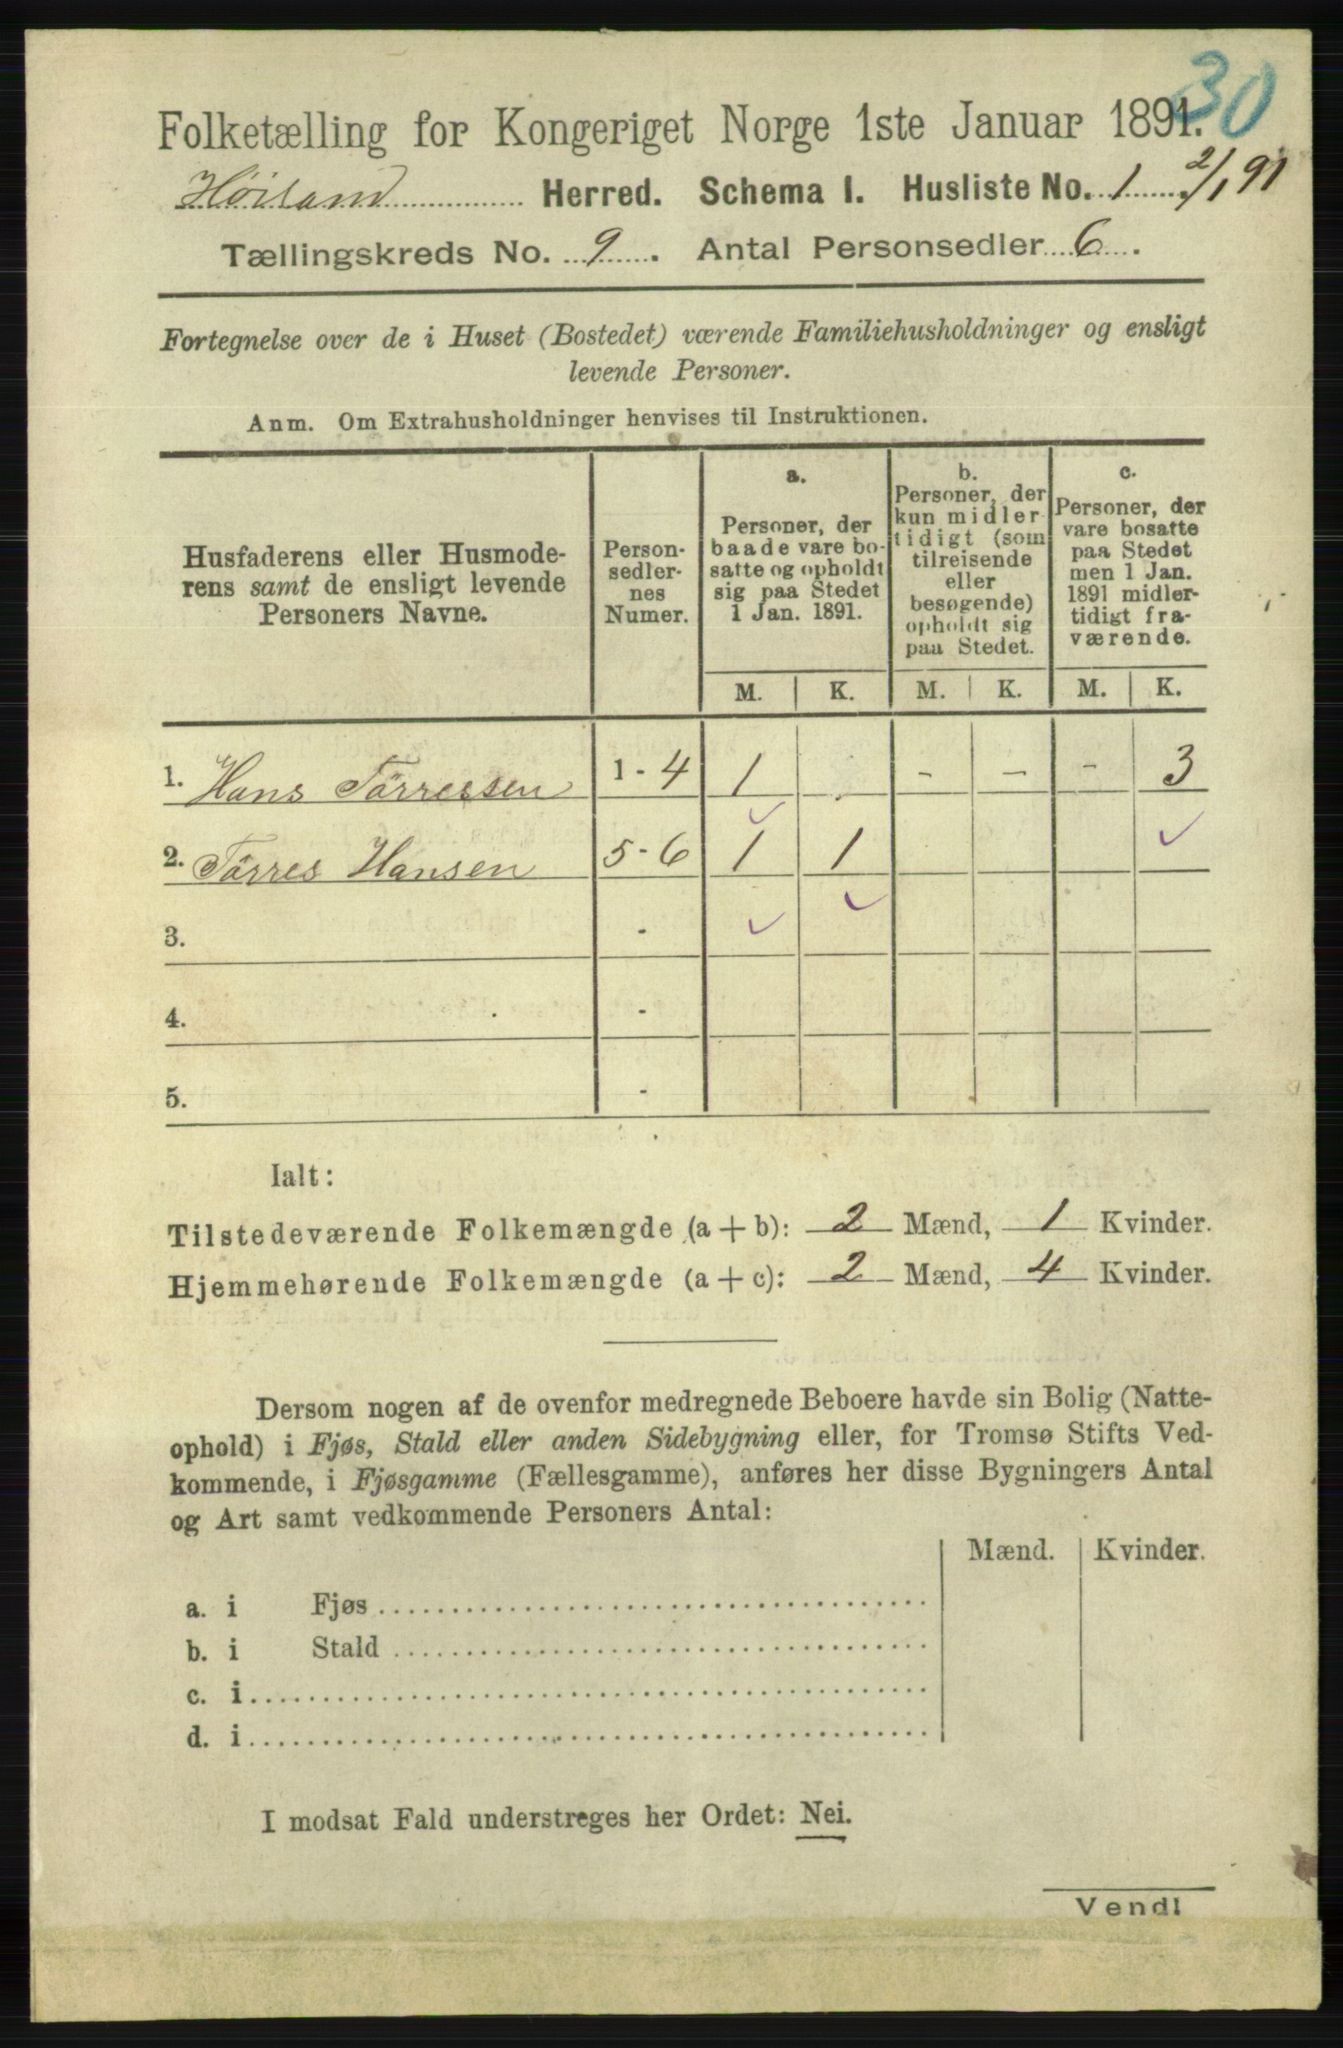 30
Folketælling for Kongeriget Norge 1ste Januar 1891.
Høiland Herred. Schema I. Husliste No. 1 2/1 91
Tællingskreds No. 9. Antal Personsedler 6.
Fortegnelse over de i Huset (Bostedet) værende Familiehusholdninger og ensligt
levende Personer.
Anm. Om Extrahusholdninger henvises til Instruktionen.
Husfaderens eller Husmode-
rens samt de ensligt levende
Personers Navne.
Person-
sedler-
nes
Numer.
a.
Personer, der
baade vare bo-
satte og opholdt
sig paa Stedet
1 Jan. 1891.
b.
Personer, der
kun midler
tidigt (som
tilreisende
eller
besøgende)
opholdt sig
paa Stedet.
c.
Personer, der
vare bosatte
paa Stedet
men 1 Jan.
1891 midler-
tidigt fra-
værende.
M. K. M. K. M. K.
1. Hans Tørressen 1 - 4 1 . - - - 3
2. Tørres Hansen 5 - 6 1 1
3. -
4. -
5. -
Ialt:
Tilstedeværende Folkemængde (a + b): 2 Mænd, 1 Kvinder.
Hjemmehørende Folkemængde (a + c): 2 Mænd, 4 Kvinder.
Dersom nogen af de ovenfor medregnede Beboere havde sin Bolig (Natte-
ophold) i Fjøs, Stald eller anden Sidebygning eller, for Tromsø Stifts Ved-
kommende, i Fjøsgamme (Fællesgamme), anføres her disse Bygningers Antal
og Art samt vedkommende Personers Antal:
Mænd. Kvinder.
a. i Fjøs
b. i Stald
c. i
d. i
I modsat Fald understreges her Ordet: Nei.
Vend!